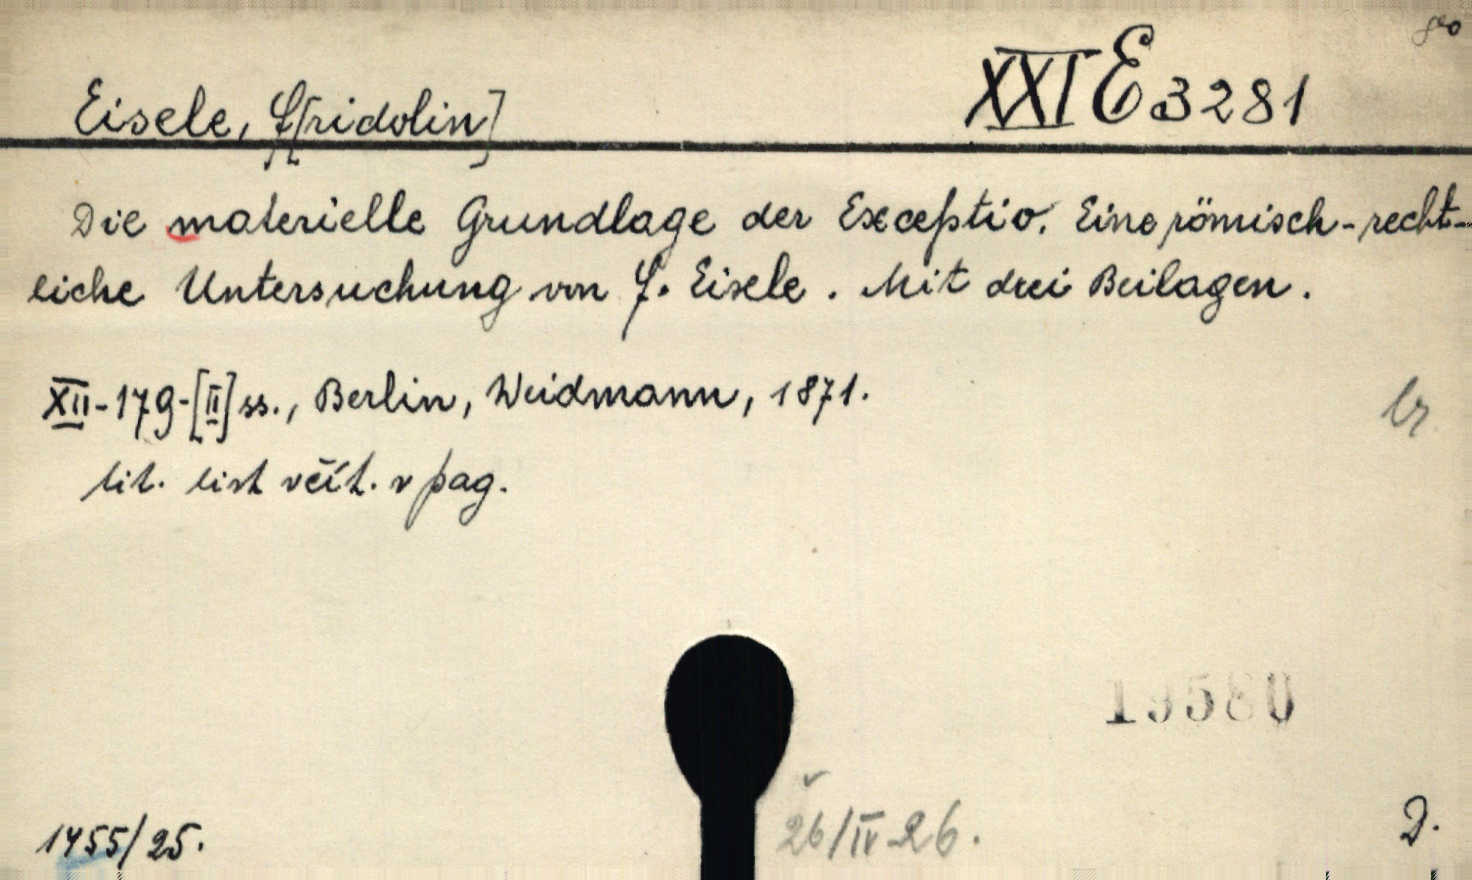 XXI E 3281
Eisele, F[ridolin]
Die materielle Grundlage der Exceptio. Eine römisch-recht-
liche Untersuchung von F. Eisele. Mit drei Beilagen.
XII-179-[II] ss., Berlin, Weidmann, 1871.
br.
tit. list včít. v pag.
19580
1455/25.
26/IV 26.
D.